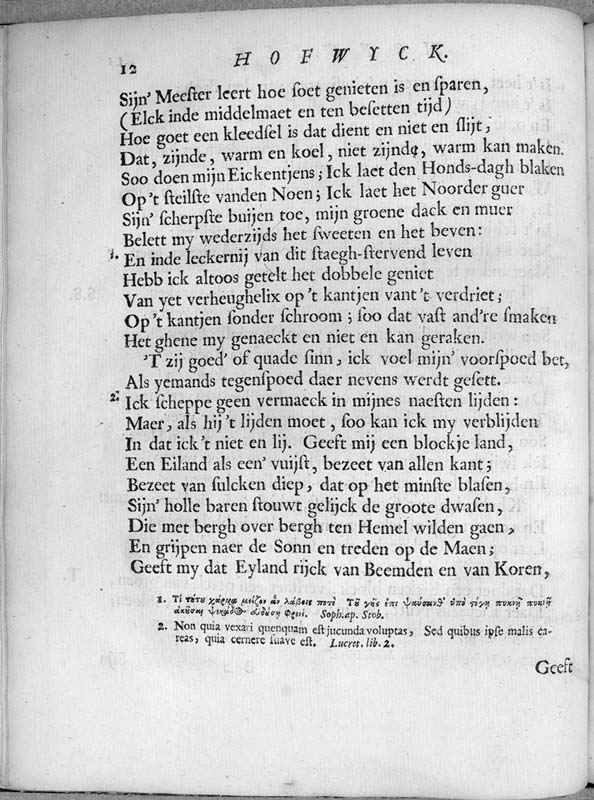 12
HOFWYCK.
Sijn' Meester leert hoe soet genieten is en sparen,
(Elck inde middelmaet en ten besetten tijd)
Hoe goet een kleedsel is dat dient en niet en slijt,
Dat, zijnde, warm en koel, niet zijnde, warm kan maken.
Soo doen mijn Eickentjens; Ick laet den Honds-dagh blaken
Op't steilste vanden Noen; Ick laet het Noorder guer
Sijn' scherpste buijen toe, mijn groene dack en muer
Belett my wederzijds het sweeten en het beven:
1. En inde leckernij van dit staegh-stervend leven
Hebb ick altoos getelt het dobbele geniet
Van yet verheughelix op 't kantjen vant't verdriet;
Op't kantjen sonder schroom; soo dat vast and're smaken
Het ghene my genaeckt en niet en kan geraken.
'T zij goed' of quade sinn, ick voel mijn' voorspoed bet,
Als yemands tegenspoed daer nevens werdt gesett.
2. Ick scheppe geen vermaeck in mijnes naesten lijden:
Maer, als hij't lijden moet, soo kan ick my verblijden
In dat ick't niet en lij. Geeft mij een blockje land,
Een Eiland als een' vuijst, bezeet van allen kant;
Bezeet van sulcken diep, dat op het minste blasen,
Sijn' holle baren stouwt gelijck de groote dwasen,
Die met bergh over bergh ten Hemel wilden gaen,
En grijpen naer de Sonn en treden op de Maen;
Geeft my dat Eyland rijck van Beemden en van Koren,
1. Τί τούτου μεῖζον ἂν λάβοις ποτὲ Τοῦ γῆς ἐπι ὑπὸ στέγῃ πυκνῆς
φρενί. Soph. ap. Stob.
2. Non quia vexari quenquam est jucunda voluptas, Sed quibus ipse malis ca-
reas, quia cernere suave est. Lucret. lib. 2.
Geeft